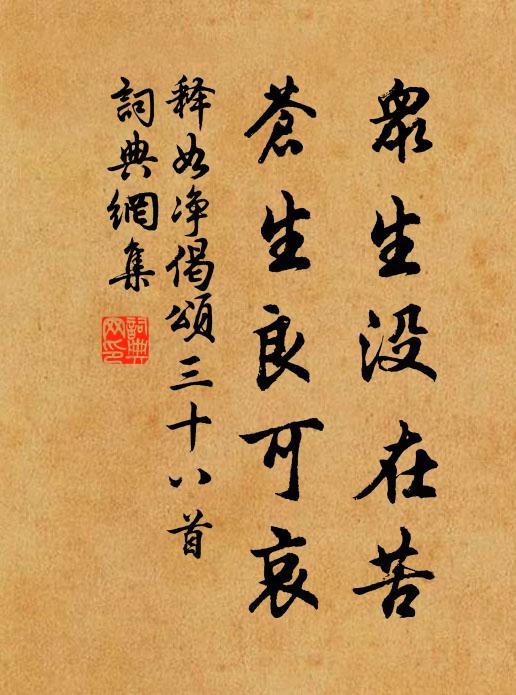 眾生没在苦
蒼生良可哀
释如净偈頌三十八首
詞典網集
詞典网印